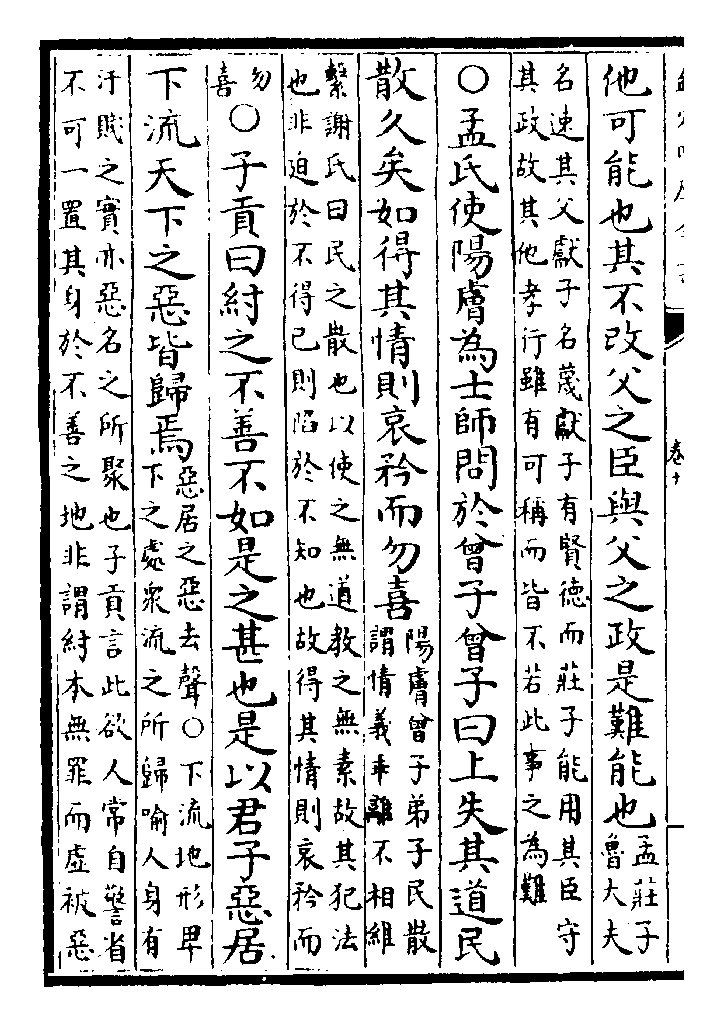 他可能也其不改父之臣與父之政是難能也孟莊子魯大夫
名速其父獻子名蔑獻子有賢德而莊子能用其臣守
其政故其他孝行雖有可稱而皆不若此事之為難
○孟氏使陽膚為士師問於曾子曾子曰上失其道民
散久矣如得其情則哀矜而勿喜陽膚曾子弟子民散
謂情義乖離不相維
繫謝氏曰民之散也以使之無道教之無素故其犯法
也非迫於不得已則陷於不知也故得其情則哀矜而
勿
喜
○子貢曰紂之不善不如是之甚也是以君子惡居
下流天下之惡皆歸焉惡居之惡去聲○下流地形卑
下之處衆流之所歸喻人身有
汙賤之實亦惡名之所聚也子貢言此欲人常自警省
不可一置其身於不善之地非謂紂本無罪而虛被惡
卷十